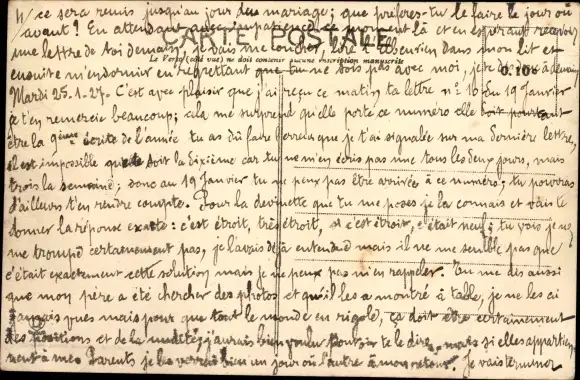 ce sera remis jusqu'au jour du mariage ; que préfères-tu le faire le jour où
avant ? En attendant avec impatience ce moment là et en espérant recevoir
CARTE POSTALE
une lettre de toi demain, je vais me coucher, lire le dans mon lit et
Le Verso (côté vue) ne doit contenir aucune inscription manuscrite
ensuite m'endormir en regrettant que tu ne sois pas avec moi, je te dis à demain
Mardi 25.1.27. C'est avec plaisir que j'ai reçu ce matin ta lettre n° 10 du 19 Janvier
je t'en remercie beaucoup ; cela me surprend qu'elle porte ce numéro elle doit pourtant
être la 9ème écrite de l'année tu as dû faire erreur que je t'ai signalée sur ma dernière lettre,
il est impossible que ce soit la dixième car tu ne m'écris pas une tous les deux jours, mais
trois la semaine ; donc au 19 Janvier tu ne peux pas être arrivée à ce numéro ; tu pourras
d'ailleurs t'en rendre compte. Pour la devinette que tu me poses je la connais et vais te
donner la réponse exacte : c'est étroit, très étroit, si c'est étroit, c'était neuf ; tu vois je ne
me trompe certainement pas, je l'avais déjà entendue mais il ne me semble pas que
c'était exactement cette solution mais je ne peux pas m'en rappeler. Tu me dis aussi
que mon père a été chercher des photos et qu'il les a montré à table, je ne les ai
jamais vues mais pour que tout le monde en rigole, ça doit être certainement
des positions et de la nudité, j'aurais bien voulu pouvoir te le dire, mais si elles appartien-
nent à mes Parents je les verrai bien un jour où l'autre à mon retour. Je vais terminer